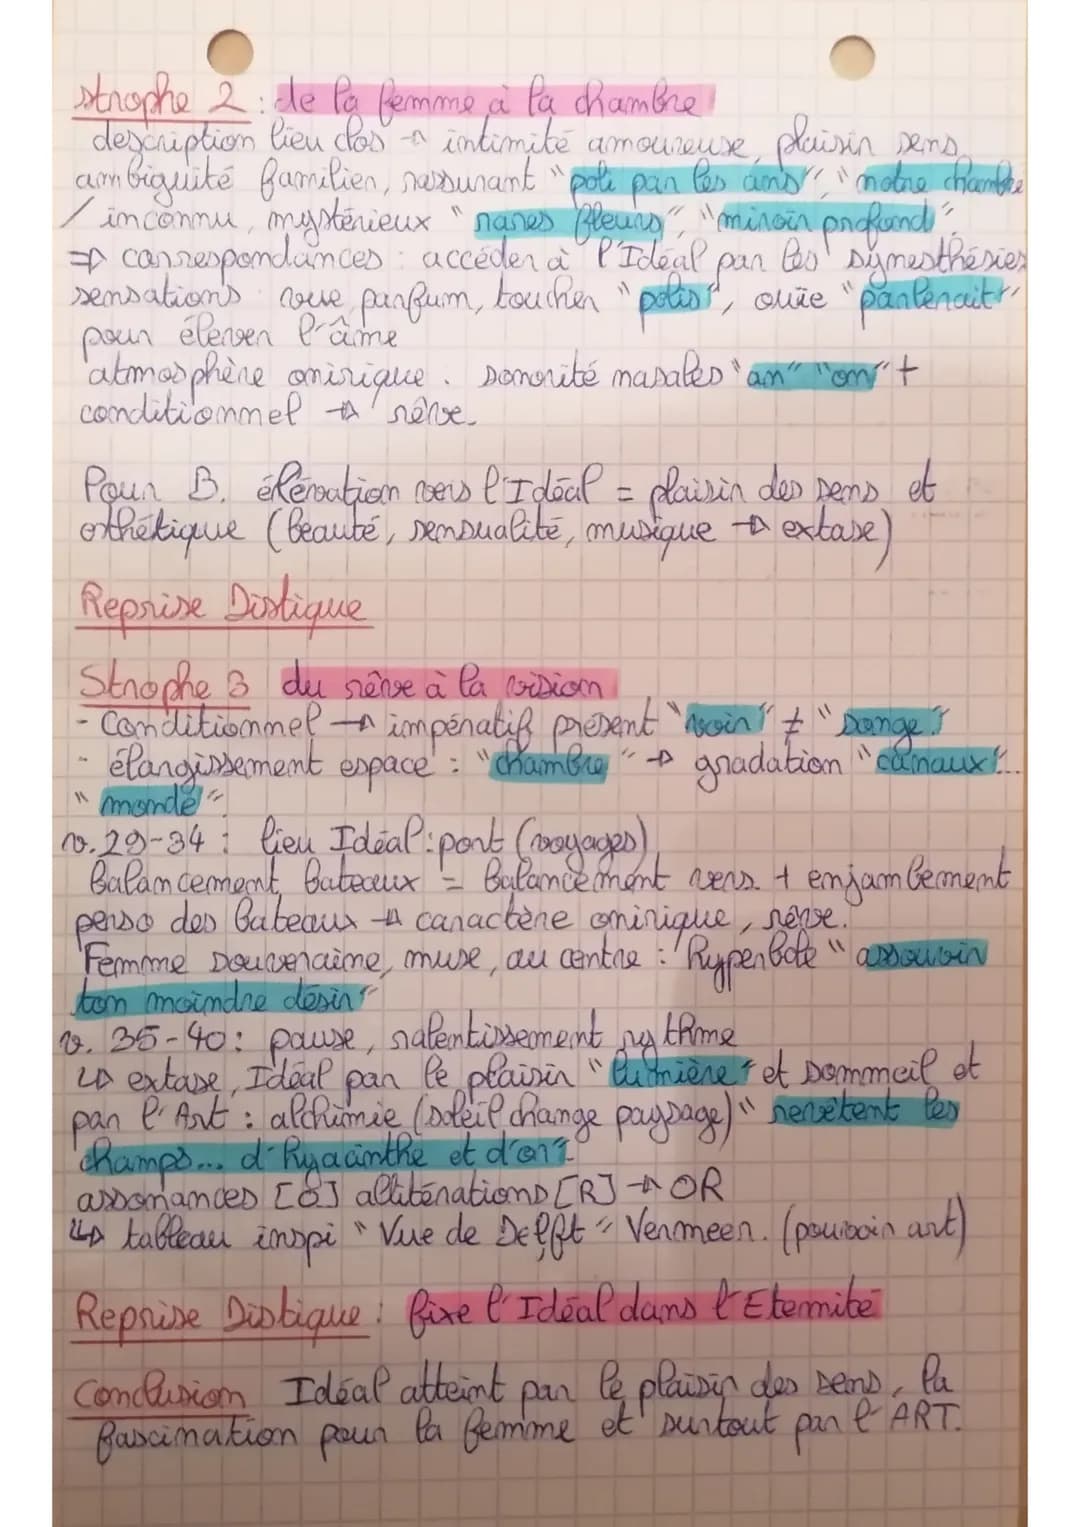 strophe 2 : de la femme à la chambre
description lieu clos → intimité amoureuse, plaisir sens
ambiguité familier, rassurant "poli par les ans", "notre chambre
/ inconnu, mystérieux "rares fleurs", "miroir profond"
⇒ correspondances : accéder à l'Idéal par les synesthésies
sensations vue parfum, toucher "polis", ouïe "parlerait"
pour élever l'âme
atmosphère onirique. sonorité nasales "an" "on" +
conditionnel → rêve.
Pour B. élévation vers l'Idéal = plaisir des sens et
esthétique (beauté, sensualité, musique → extase)
Reprise Distique
Strophe 3 du rêve à la vision
- Conditionnel → impératif présent "voir" ≠ "songe"
- élargissement espace : "chambre" → gradation "canaux"...
"monde"
v. 29-34 : lieu Idéal : port (voyages)
Balancement Bateaux = Balancement vers + enjambement
perso des bateaux → caractère onirique, rêve.
Femme souveraine, muse, au centre : hyperbole "assouvir
ton moindre désir"
v. 35-40 : pause, ralentissement rythme
↳ extase, Idéal par le plaisir "lumière" et sommeil et
par l'Art : alchimie (soleil change paysage) "revêtent les
champs... d'hyacinthe et d'or"
assonances [O] allitérations [R] → OR
↳ tableau inspi "Vue de Delft" Vermeer. (pouvoir art)
Reprise Distique : fixe l'Idéal dans l'Eternité
Conclusion Idéal atteint par le plaisir des sens, la
fascination pour la femme et surtout par l'ART.